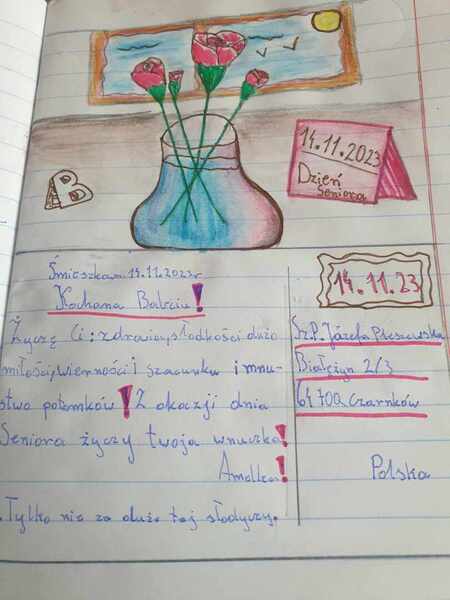 14.11.2023
Dzień
Seniora
B
Śmieszkowo 14.11.2023r
Kochana Babciu!
Życzę Ci: zdrowia, słodkości dużo
miłości, wierności i szacunku i mnu-
stwo potomków! Z okazji dnia
Seniora życzy twoja wnuczka!
Amelka!
.Tylko nie za dużo tej słodyczy.
14.11.23
Sz.P. Józefa Pleszewska
Białężyn 2/3
64 700 Czarnków
Polska